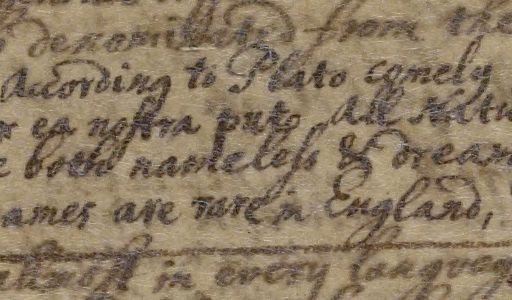 denominated from the
According to Plato comely
ea nostra puto All Natu
both nameless & dream
ames are rare in England,
in every langueg